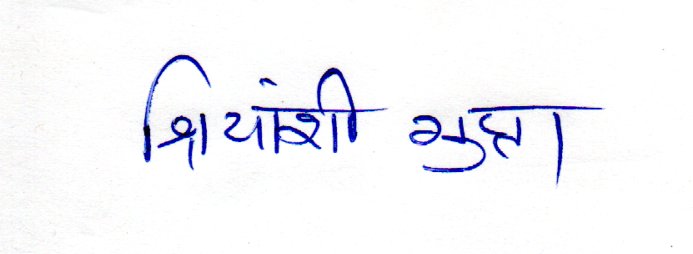 श्रियांशी गुप्ता